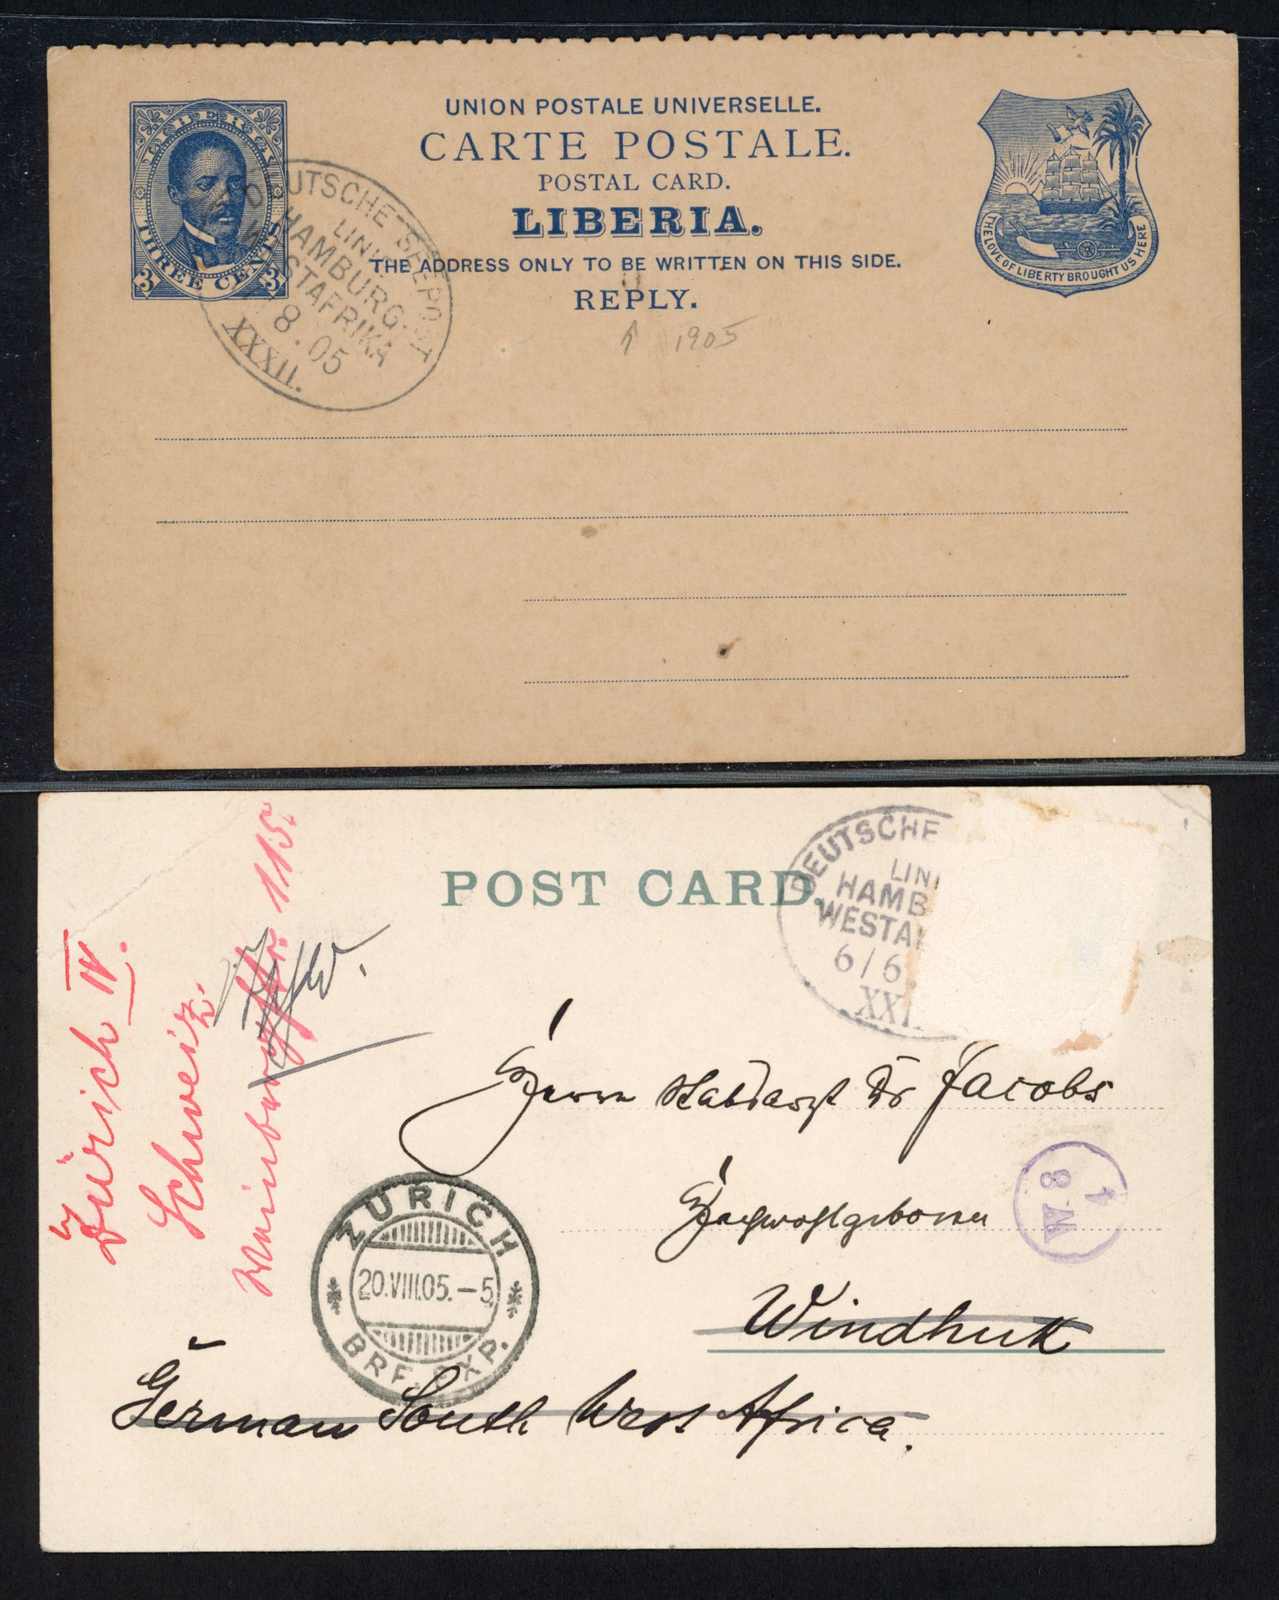 UNION POSTALE UNIVERSELLE.
CARTE POSTALE.
POSTAL CARD.
LIBERIA.
THE ADDRESS ONLY TO BE WRITTEN ON THIS SIDE.
REPLY.
1905
LIBERIA
THREE CENTS
3 3
THE LOVE OF LIBERTY BROUGHT US HERE
DEUTSCHE SEEPOST
LINIE
HAMBURG-
WESTAFRIKA
8.05
XXXII.
POST CARD.
DEUTSCHE
LINI
HAMB
WESTAF
6/6
XXI
Zürich IV.
Schweiz.
115.
Herrn Stabsarzt Dr Jacobs
Hochwohlgeboren
Windhuk
German South West Africa.
ZÜRICH
20.VIII.05.-5
BRF. EXP.
1
W 8